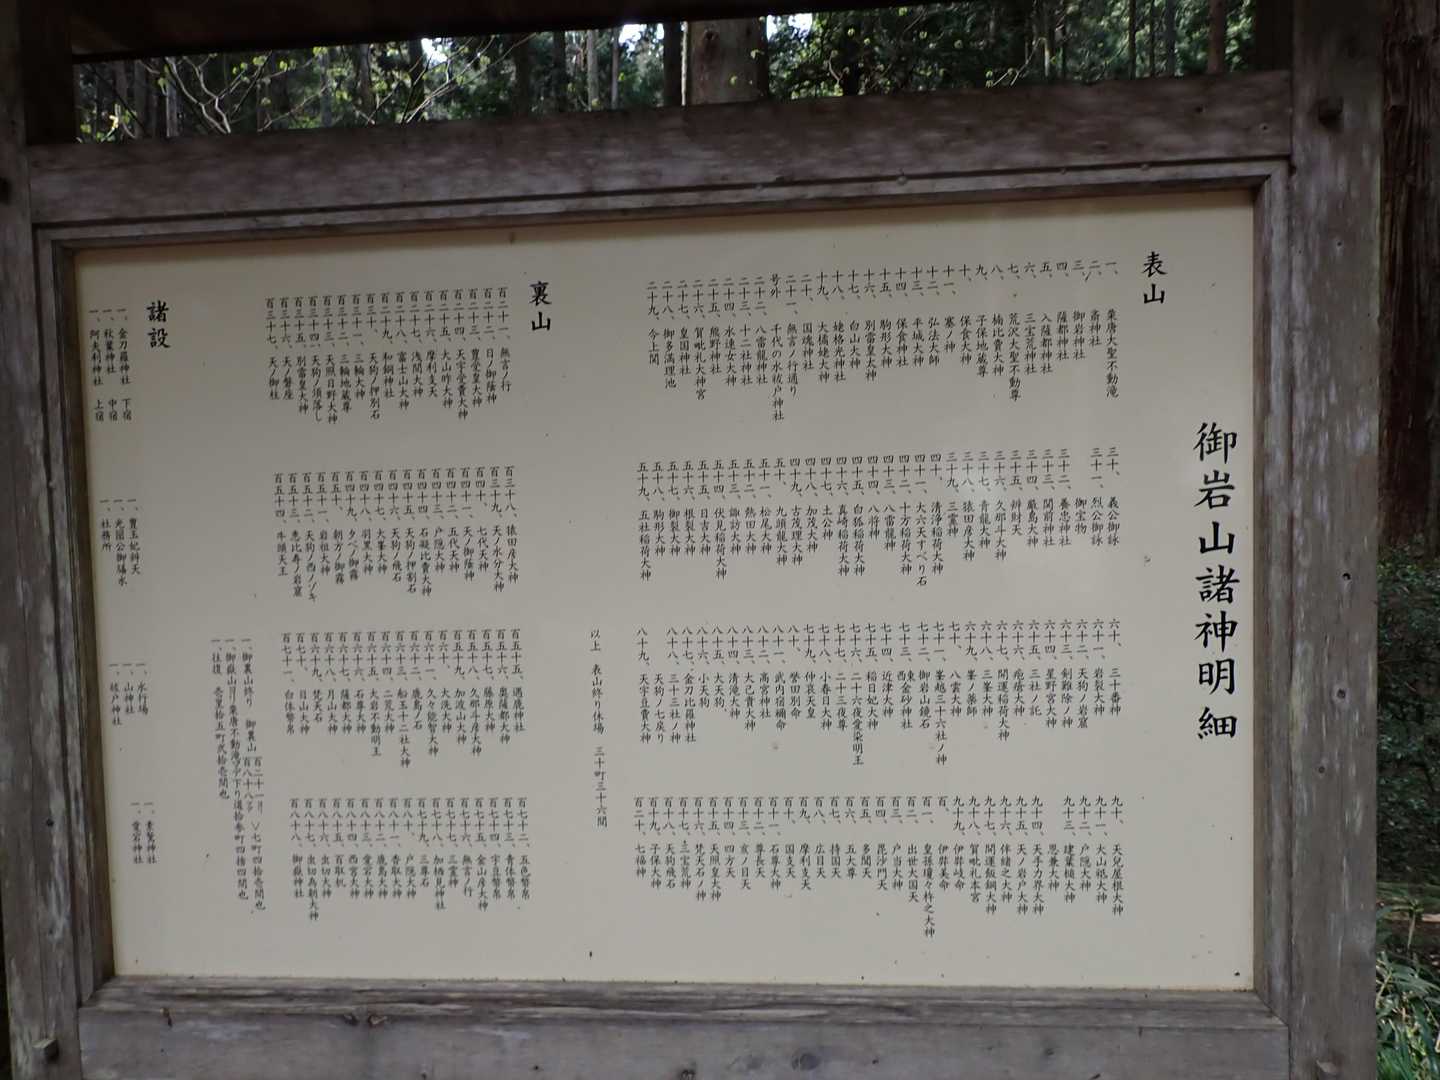 御岩山諸神明細
表山
一、粟唐大聖不動滝
二、斎神社
三、御岩神社
四、薩都神社
五、入薩都神社
六、三宝荒神社
七、荒沢大聖不動尊
八、楠比賣大神
九、子保地蔵尊
十、保食大神
十一、塞ノ神
十二、弘法大師
十三、平城大神
十四、保食神社
十五、駒形大神
十六、別雷皇太神
十七、白山大神
十八、姥格光神社
十九、大橘姥大神
二十、国魂神社
二十一、無言ノ行通り
号外 千代の水祓戸神社
二十二、八雷龍神社
二十三、十二社神社
二十四、水速女大神
二十五、熊野神社
二十六、賀毗礼大神宮
二十七、皇国神社
二十八、御多満理池
二十九、今上関
三十、義公御詠
三十一、烈公御詠
御宝物
三十二、養忠神社
三十三、関前神社
三十四、厳島大神
三十五、辨財天
三十六、久那斗大神
三十七、青龍大神
三十八、猿田彦大神
三十九、三霊神
四十、清浄稲荷大神
四十一、大六天すべり石
四十二、十方稲荷大神
四十三、八雷龍神
四十四、八将神
四十五、白狐稲荷大神
四十六、真崎稲荷大神
四十七、土公神
四十八、加茂大神
四十九、古茂理大神
五十、九頭龍大神
五十一、松尾大神
五十二、熱田大神
五十三、諏訪大神
五十四、伏見稲荷大神
五十五、日吉大神
五十六、根裂大神
五十七、御裂大神
五十八、駒形大神
五十九、五社稲荷大神
六十、三十番神
六十一、岩裂大神
六十二、天狗ノ岩窟
六十三、剣難除ノ神
六十四、星野宮大神
六十五、三社ノ託
六十六、疱瘡大神
六十七、開運稲荷大神
六十八、三峯大神
六十九、峯ノ薬師
七十、八雲大神
七十一、峯越三十六社ノ神
七十二、御岩山鏡石
七十三、東金砂神社
七十四、近津大神
七十五、稲日妃大神
七十六、二十六夜愛染明王
七十七、二十三夜尊
七十八、小春日大神
七十九、仲哀天皇
八十、誉田別命
八十一、武内宿禰命
八十二、高宮神社
八十三、大己貴大神
八十四、清滝大神
八十五、大天狗
八十六、小天狗
八十七、金刀比羅神社
八十八、三十三社ノ神
天狗ノ七戻り
八十九、天宇豆賣大神
九十、天兒屋根大神
九十一、大山祇大神
九十二、戸隠大神
九十三、建葉槌大神
思兼大神
九十四、天手力男大神
九十五、天ノ岩戸大神
九十六、伴緒之大神
九十七、開運飯鋼大神
九十八、賀毗礼本宮
九十九、伊弉岐命
百、伊弉美命
百一、皇孫瓊々杵之大神
百二、出世大国天
百三、戸当大神
百四、毘沙門天
百五、多聞天
百六、五大尊
百七、持国天
百八、広目天
百九、摩利支天
百十、国支天
百十一、石尊大神
百十二、尊長天
百十三、亥ノ日天
百十四、四方天
百十五、天照皇大神
百十六、梵天石ノ神
百十七、三宝荒神
百十八、天狗飛石
百十九、子保大神
百二十、七福神
以上 表山終り休場 三十町三十六間
裏山
百二十一、無言ノ行
百二十二、日ノ御蔭神
百二十三、豊受皇大神
百二十四、天宇受賣大神
百二十五、大山昨大神
百二十六、摩利支天
百二十七、浅間大神
百二十八、富士山大神
百二十九、和銅神社
百三十、天狗ノ押別石
百三十一、三輪大神
百三十二、三輪地蔵尊
百三十三、天照日野大神
百三十四、天狗ノ須落し
百三十五、別雷皇大神
百三十六、天ノ磐座
百三十七、天ノ御柱
百三十八、猿田彦大神
百三十九、天ノ水分大神
百四十、七代天神
百四十一、天ノ御蔭神
百四十二、五代天神
百四十三、戸隠大神
百四十四、石凝比賣大神
百四十五、天狗ノ押割石
百四十六、天狗ノ飛石
百四十七、大峯大神
百四十八、羽黒大神
百四十九、夕べノ御霧
百五十、朝方ノ御霧
百五十一、岩祖大神
百五十二、天狗ノ西ノゾキ
百五十三、恵比寿ノ岩窟
百五十四、牛頭天王
百五十五、遇鹿神社
百五十六、奥薩都大神
百五十七、藤原大神
百五十八、久那斗彦大神
百五十九、加波山大神
百六十、大洗大神
百六十一、久々能智大神
百六十二、鹿島ノ石
百六十三、船玉十二社大神
百六十四、二荒大神
百六十五、大岩不動明王
百六十六、石尊大神
百六十七、薩都大神
百六十八、月山大神
百六十九、梵天石
百七十、日山大神
百七十一、白体幣帛
百七十二、五色幣帛
百七十三、青体幣帛
百七十四、宇豆幣帛
百七十五、金山彦大神
百七十六、無言ノ行
百七十七、三霊神
百七十八、加栖見神社
百七十九、三尊石
百八十、戸隠大神
百八十一、香取大神
百八十二、鹿島大神
百八十三、愛宕大神
百八十四、西宮大神
百八十五、百取机
百八十六、出切大神
百八十七、出切為朝大神
百八十八、御嶽神社
一、御裏山終り 御裏山 百二十一ヨリ百八十八マデ 〉七町四拾壱間也
一、御嶽山ヨリ粟唐不動滝マデ下り道拾参町四拾四間也
一、往復 壱里拾五町弐拾壱間也
諸設
一、金刀羅神社 下宿
一、秋葉神社 中宿
一、阿夫利神社 上宿
一、寶玉妃辨天
一、光圀公御硯水
一、社務所
一、水行場
一、山神社
一、祓戸神社
一、素鵞神社
一、愛宕神社